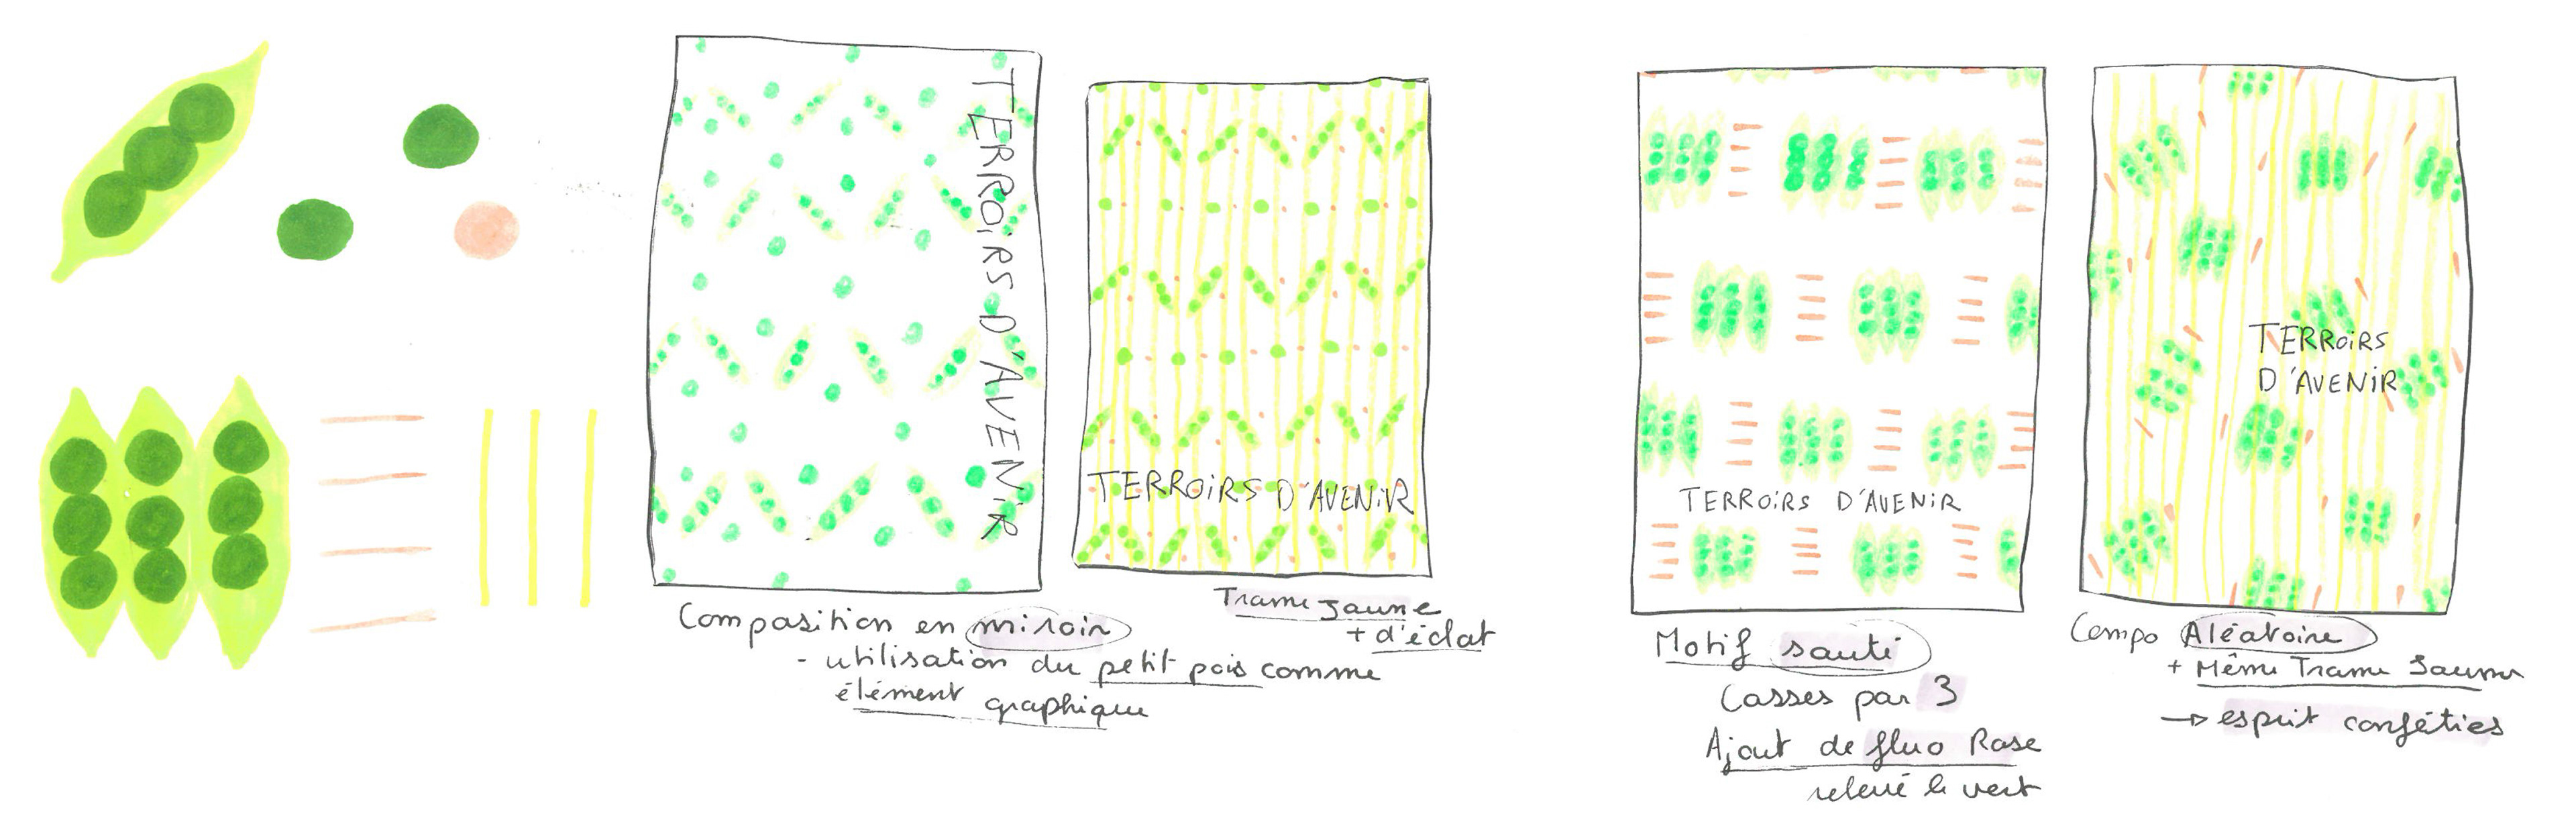 TERROIRS D'AVENIR
TERROIRS D'AVENIR
Composition en miroir
- utilisation du petit pois comme
élément graphique
Trame Jaune
+ d'éclat
TERROIRS D'AVENIR
Motif sauté
Casses par 3
Ajout de fluo Rose
relevé le vert
TERROIRS
D'AVENIR
Compo Aléatoire
+ Même Trame Jaune
→ esprit conféties